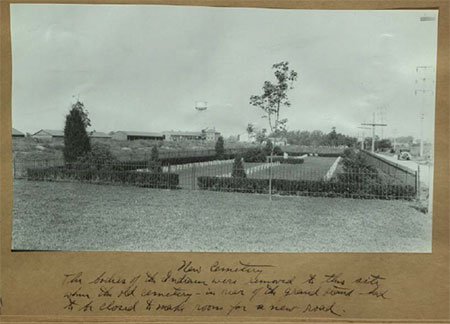 New Cemetery
The bodies of the Indians were removed to this site
when the old cemetery - in rear of the grand stand - had
to be closed to make room for a new road.